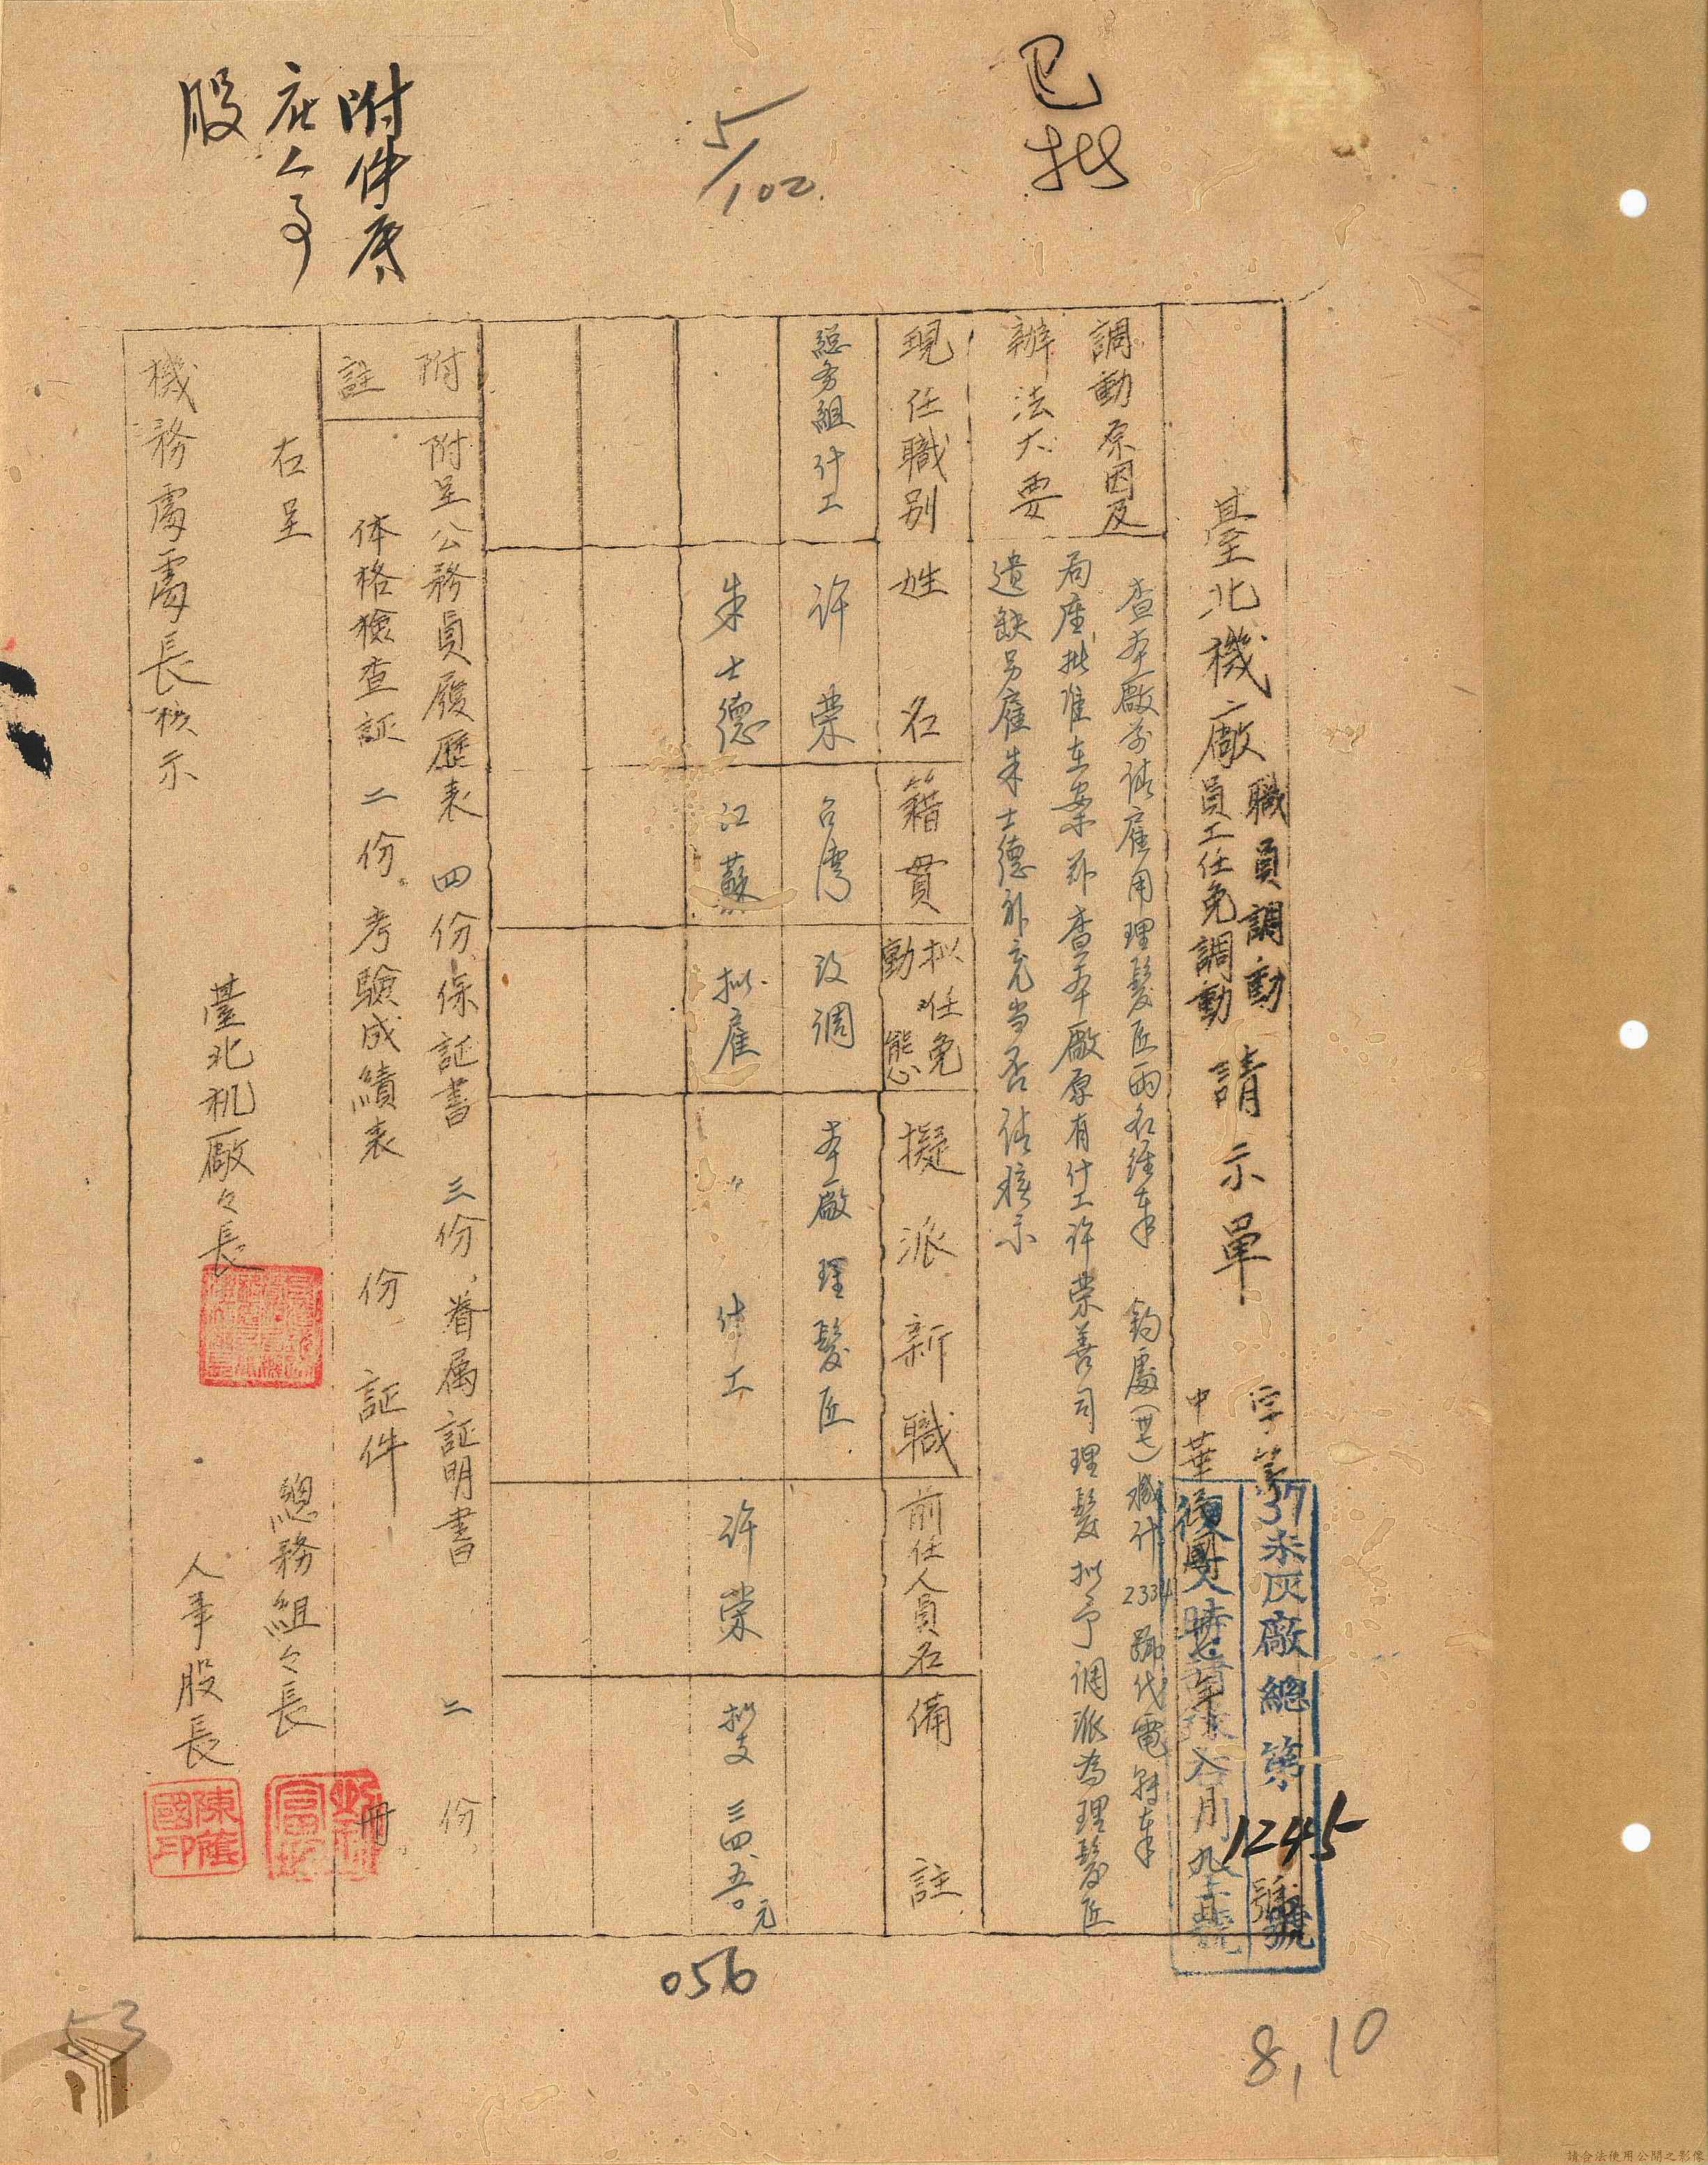 已批
5/102
附件存
在人事
股
臺北機廠
職員調動
員工任免調動
請示單
字第 號
中華民國卅七年八月九日
37未灰廠總第1245號
調動原因及
辦法大要
查本廠前請雇用理髮匠兩名經奉 鈞處(卄七)機什2334號代電轉奉
局座批准在案 茲查本廠原有什工許榮善司理髮拟予調派為理髮匠
遺缺另雇朱士德補充當否請核示
現任職別
姓名
籍貫
拟任免
動態
擬派新職
前任人員名
備註
總务組什工 許榮 台湾 改調 本廠理髮匠
朱士德 江蘇 拟雇 〃 什工 許榮 拟支三四.五〇元
附註
附呈公務員履歷表四份、保証書三份、眷属証明書二份、
体格檢查証二份、考驗成績表 份 証件 冊
右呈
機務處處長核示
臺北机廠々長
總務組々長
人事股長
陳舊國印
056
8,10
53
請合法使用公開之影像